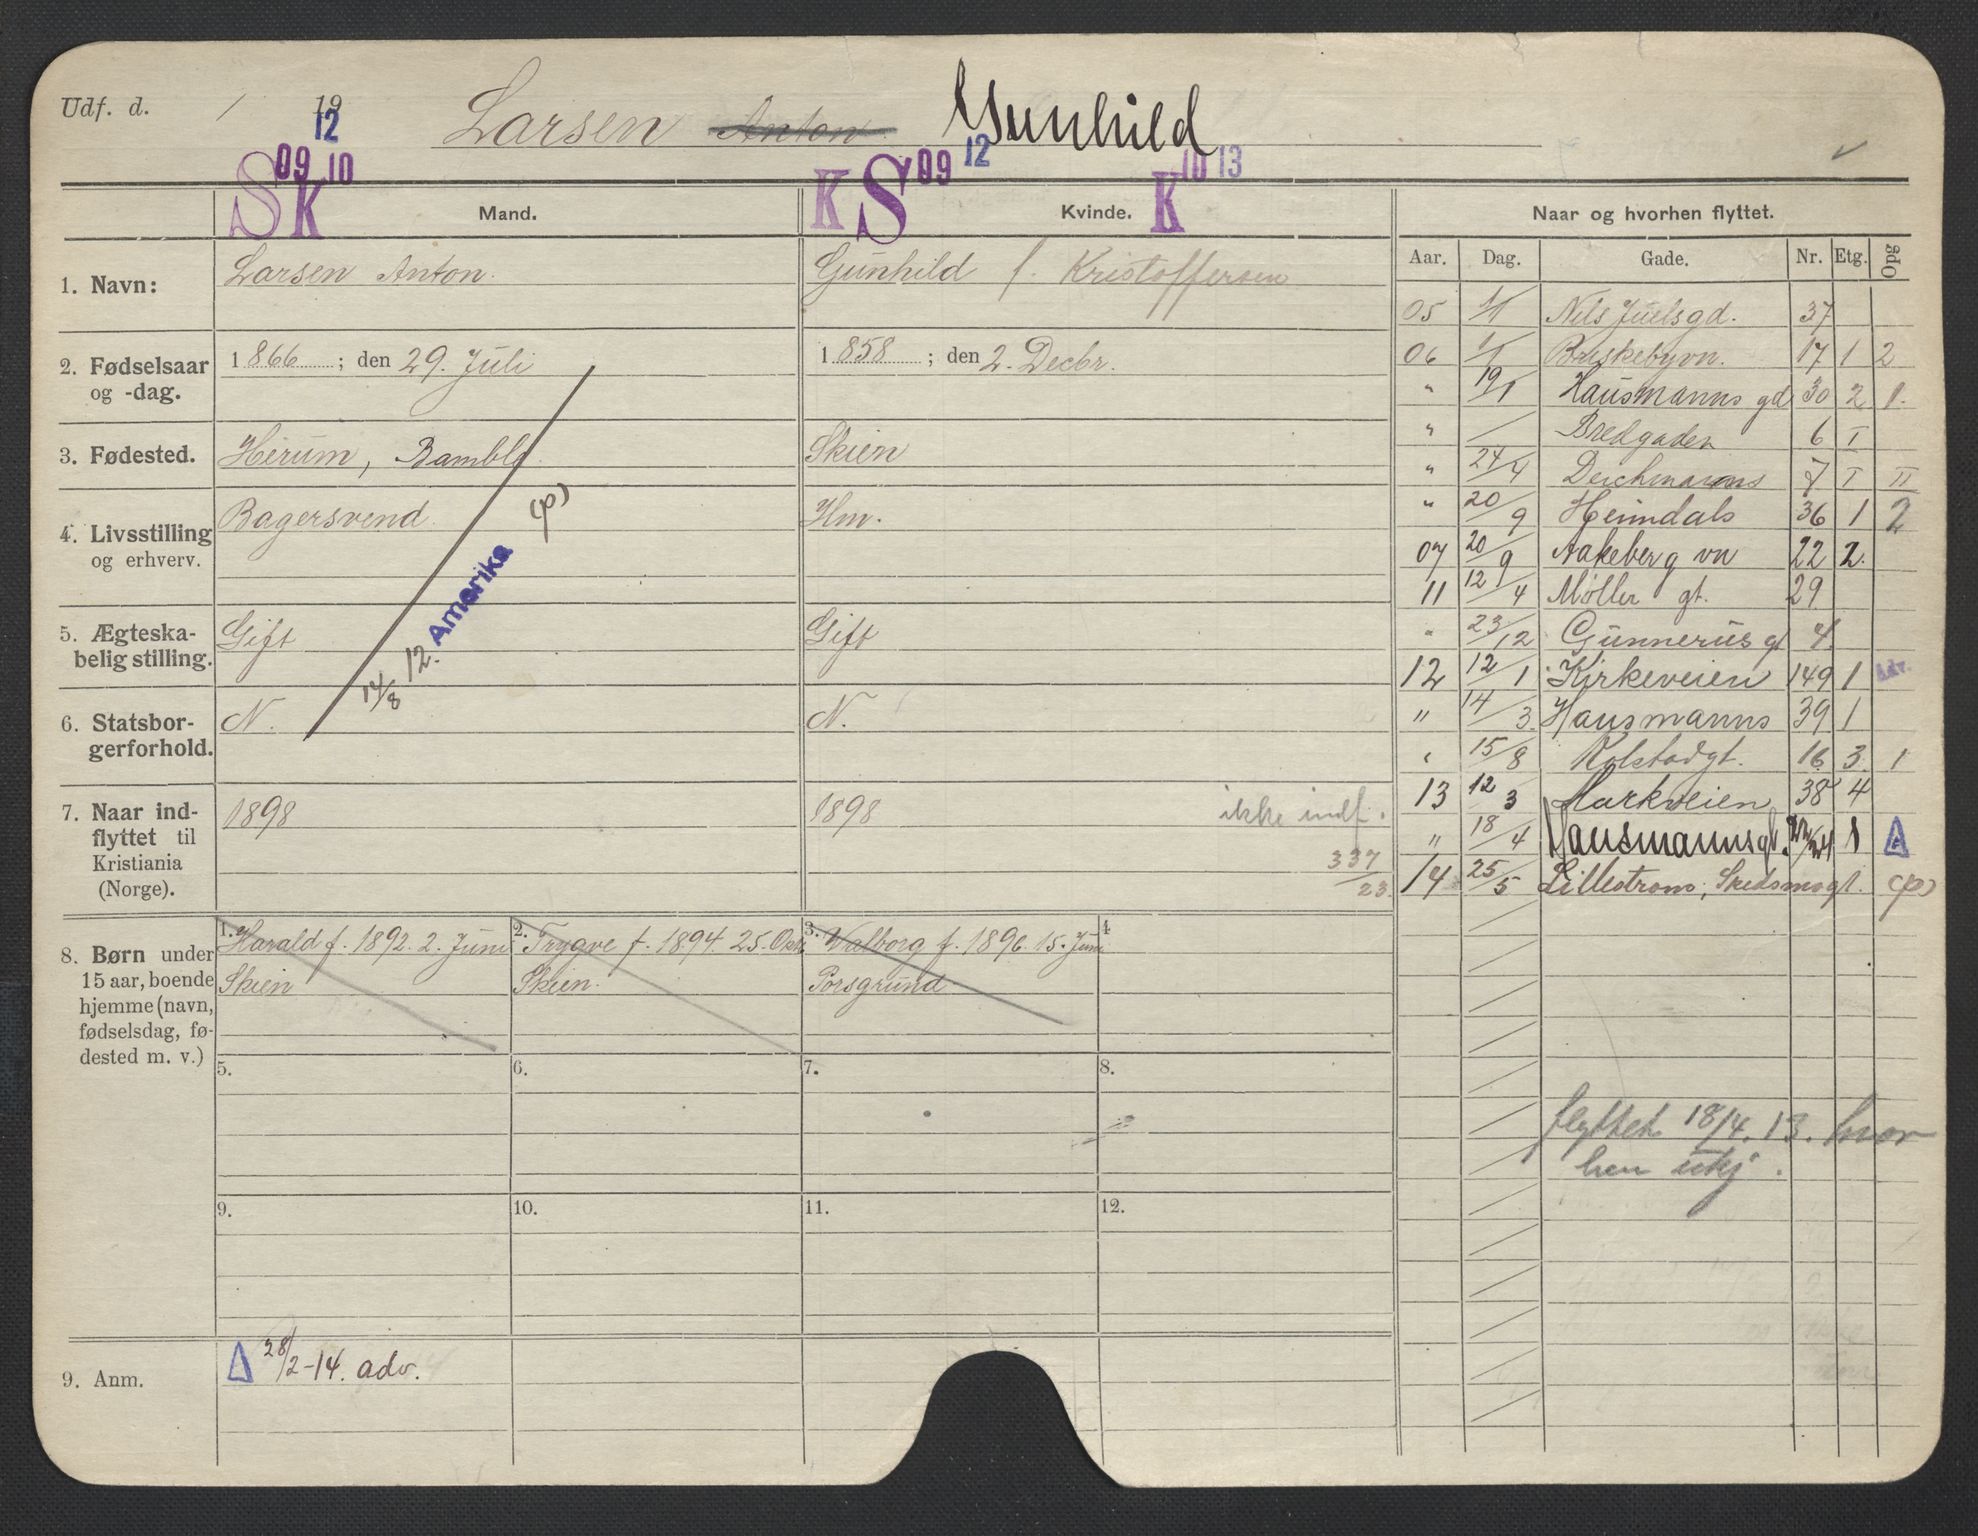 Udf. d. / 19
12
Larsen Anton Gunhild
S 09 K 10
K S 09 12 K 10 13
Mand.
Kvinde.
Naar og hvorhen flyttet.
Aar. Dag. Gade. Nr. Etg. Opg
1. Navn:
Larsen Anton.
Gunhild f. Kristoffersen
2. Fødselsaar
og -dag.
1866 ; den 29. Juli
1858 ; den 2. Decbr.
3. Fødested.
Herum, Bamble
Skien
4. Livsstilling
og erhverv.
Bagersvend.
Hm.
5. Ægteska-
belig stilling.
Gift
Gift
14/8 12. Amerika (p)
6. Statsbor-
gerforhold.
N.
N.
7. Naar ind-
flyttet til
Kristiania
(Norge).
1898
1898 ikke indf.
337/23
05 1/1 Nils Juelsgd. 37
06 1/1 Briskebyvn. 17 1 2
" 19/1 Hausmanns gd 30 2 1.
" / Bredgaden 6 I
" 24/4 Deichmanns 7 I II
" 20/9 Heimdals 36 1 2
07 20/9 Aakeberg vn 22 2.
11 12/4 Møller gt. 29
" 23/12 Gunnerus gt 4.
12 12/1 Kirkeveien 149 1 Adr.
" 14/3 Hausmanns 39 1
" 15/8 Kolstadgt. 16 3. 1
13 12/3 Markveien 38 4
" 18/4 Hausmannsgt. 1 A
14 25/5 Lillestrøm, Skedsmogt. (p)
8. Børn under
15 aar, boende
hjemme (navn,
fødselsdag, fø-
dested m. v.)
1. Harald f. 1892. 2. Juni
Skien
2. Trygve f. 1894. 25. Okt
Skien.
3. Valborg f. 1896. 15. Juni
Porsgrund
4
5.
6.
7.
8.
flyttet 18/4. 13. hvor
hen ukj.
9.
10.
11.
12.
9. Anm.
Δ 28/2-14. adv.